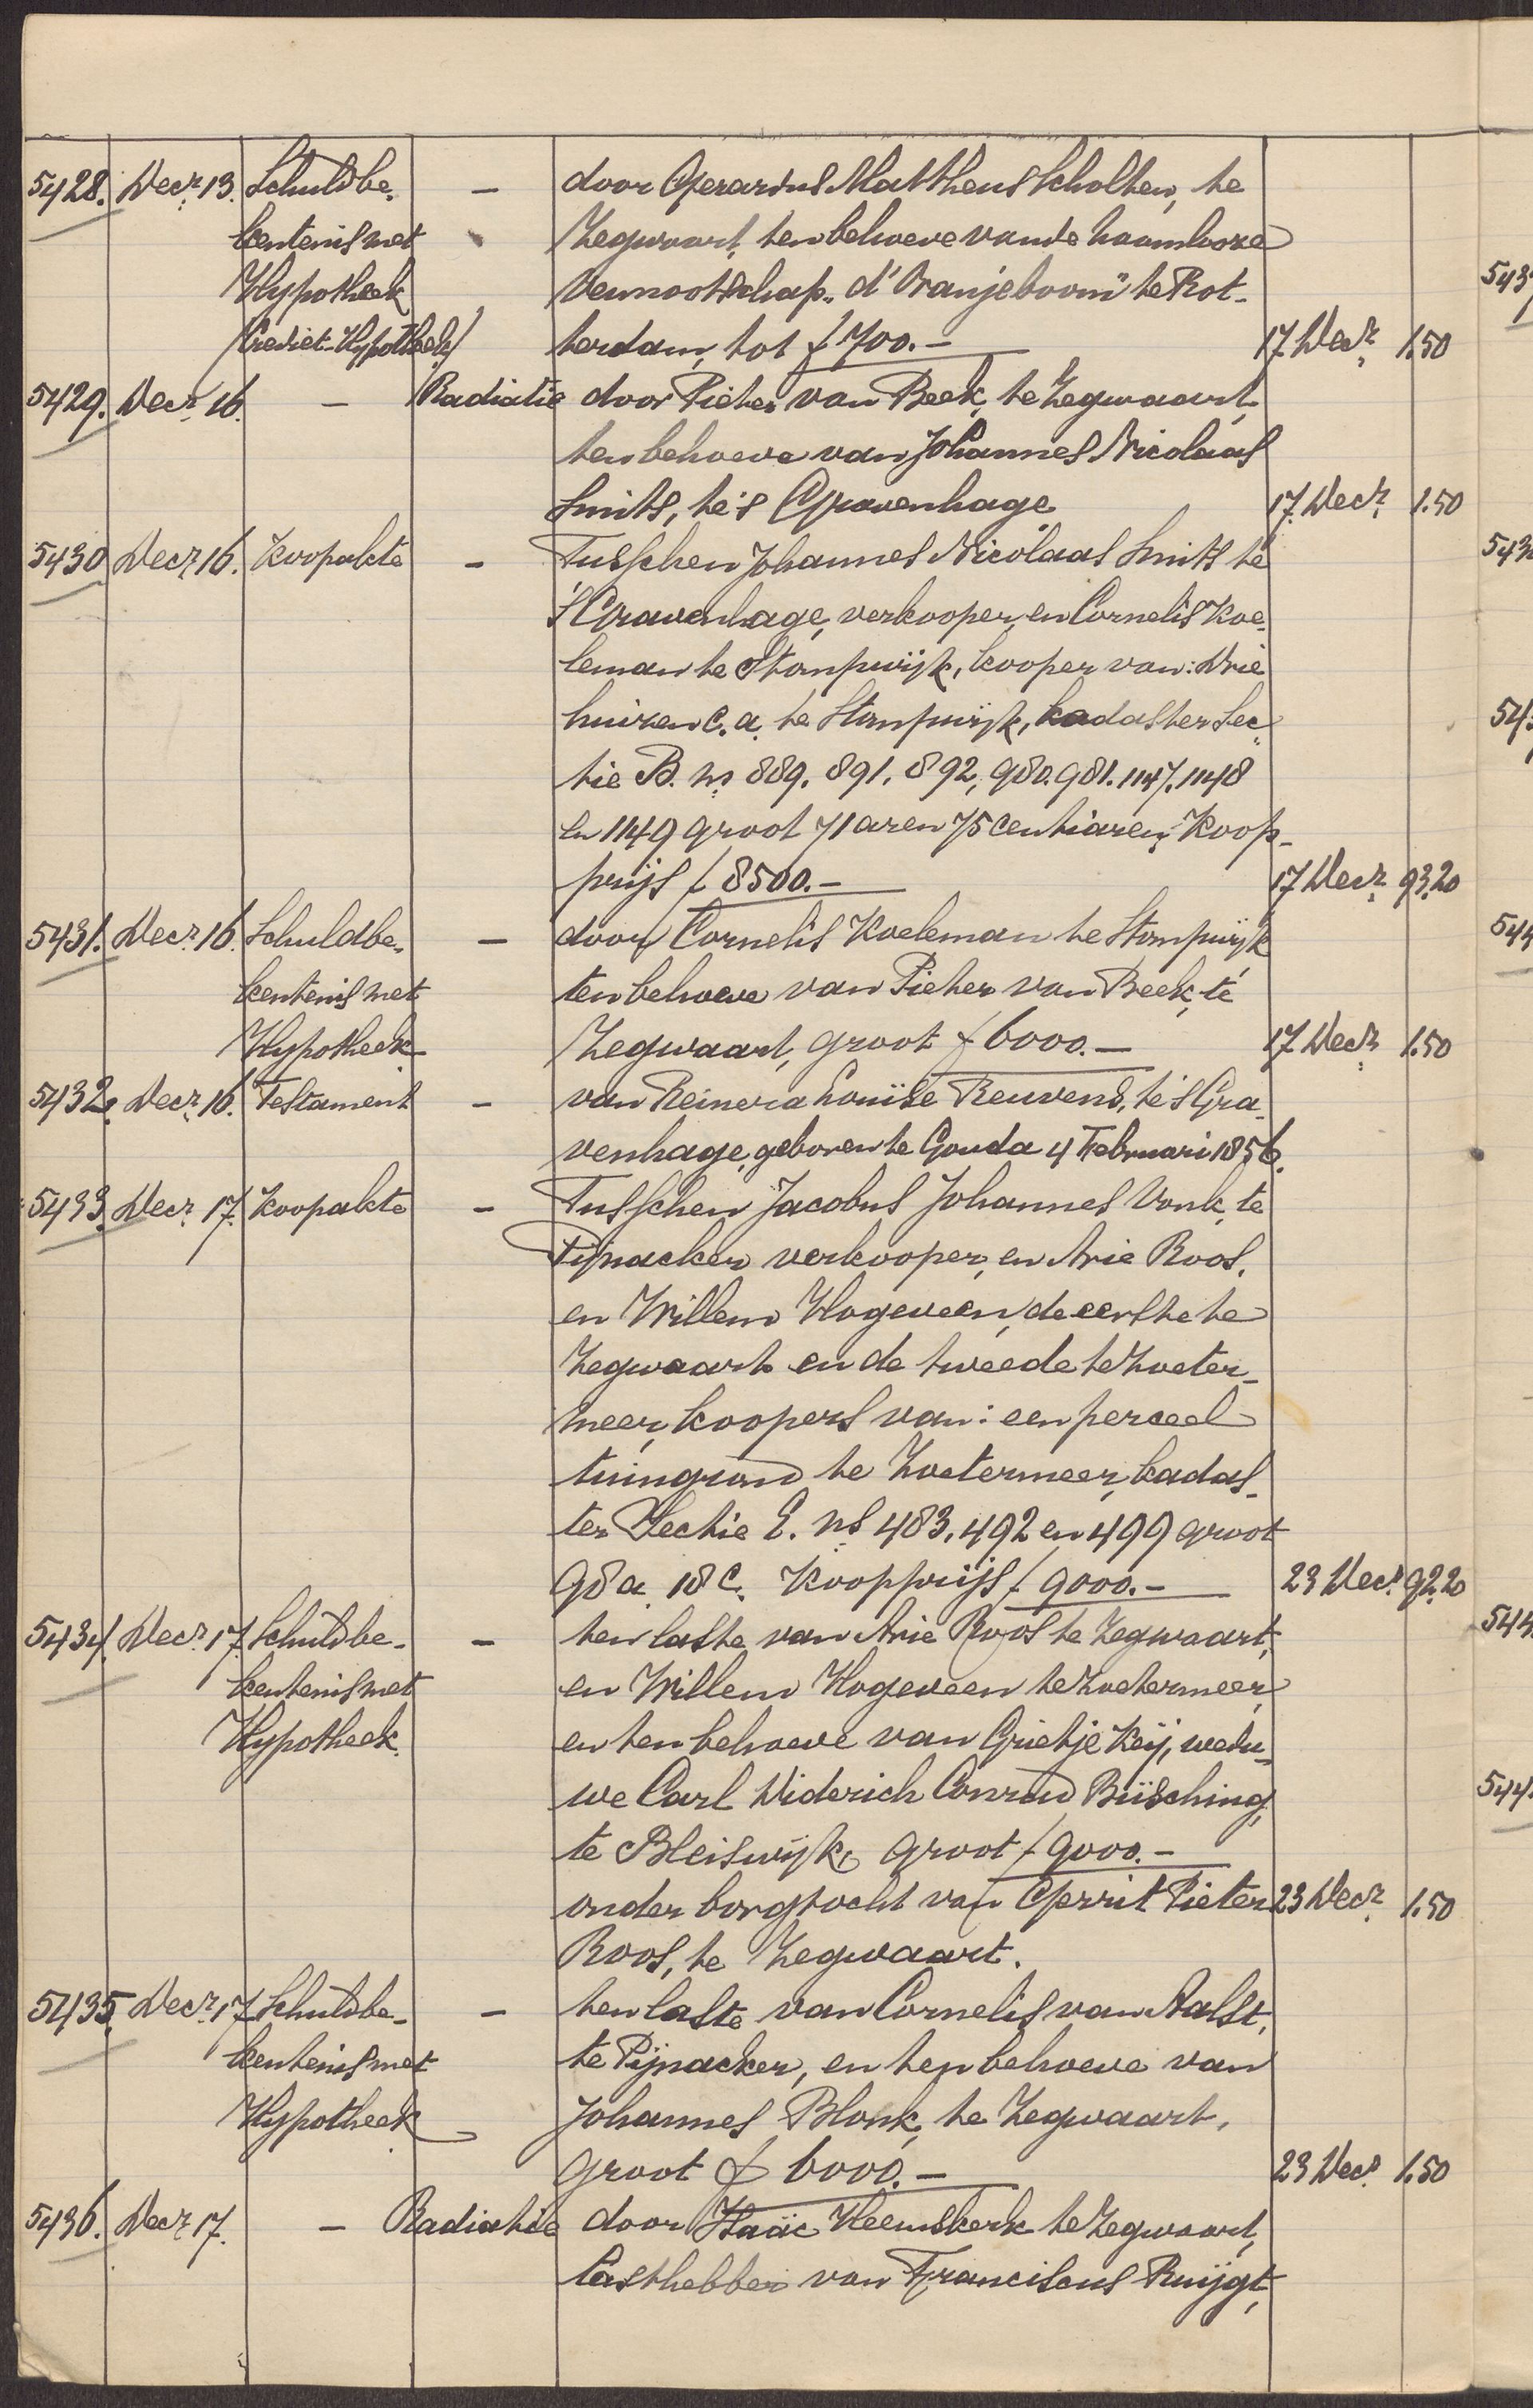 5428. Decr 13. Schuldbe- — door Gerardus Mattheus Scholten, te
kentenis met Zegwaart, ten behoeve van de Naamlooze
Hypotheek Vennootschap „d'Oranjeboom" te Rot-
(Crediet-Hypotheek) terdam, tot f 700.- 17 Decr 1.50
5429. Decr 16. — Radiatie door Pieter van Beek, te Zegwaart,
ten behoeve van Johannes Nicolaas
Smits, te 's Gravenhage 17 Decr 1.50
5430 Decr 16. Koopakte — Tusschen Johannes Nicolaas Smits te
's Gravenhage, verkooper, en Cornelis Koe-
leman te Stompwijk, kooper van: Drie
huizen c.a. te Stompwijk, kadaster Sec-
tie B. ns 889. 891. 892, 980. 981. 1147. 1148
en 1149 groot 71 aren 75 centiaren, Koop-
prijs f 8500.- 17 Decr 93.20
5431. Decr 16. Schuldbe- — door Cornelis Koeleman te Stompwijk
kentenis met ten behoeve van Pieter van Beek, te
Hypotheek Zegwaart, groot f 6000.- 17 Decr 1.50
5432. Decr 16. Testament — van Reinera Louise Reuvens, te 's Gra-
venhage, geboren te Gouda 4 Februari 1856.
5433. Decr 17. Koopakte — Tusschen Jacobus Johannes Vonk, te
Pijnacker verkooper, en Arie Roos,
en Willem Hogeveen, de eerste te
Zegwaart en de tweede te Zoeter-
meer, koopers van: een perceel
tuingrond te Zoetermeer, kadas-
ter Sectie E. ns 483, 492 en 499 groot
98 a 18 c. Koopprijs f 9000.- 23 Decr 92.20
5434. Decr 17. Schuldbe- — ten laste van Arie Roos te Zegwaart,
kentenis met en Willem Hogeveen te Zoetermeer,
Hypotheek. en ten behoeve van Grietje Keij, wedu-
we Carl Diderich Conrad Büsching,
te Bleiswijk, groot f 9000.-
onder borgtocht van Gerrit Pieter 23 Decr 1.50
Roos, te Zegwaart.
5435. Decr 17 Schuldbe- — ten laste van Cornelis van Aalst,
kentenis met te Pijnacker, en ten behoeve van
Hypotheek Johannes Blonk, te Zegwaart,
groot f 6000.- 23 Decr 1.50
5436. Decr 17. — Radiatie door Isaäc Heemskerk te Zegwaart,
lasthebber van Franciscus Ruijgt,